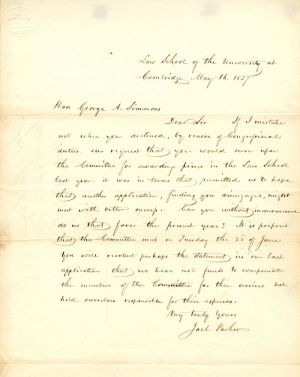 Law School of the University at
Cambridge May 16. 1857
Hon George A. Simmons
Dear Sir If I mistake
not when you declined, by reason of Congressional
duties, our request that you would serve upon
the Committee for awarding prizes in the Law School
last year it was in terms that permitted us to hope
that another application, finding you disengaged, might
meet with better success. Can you without inconvenience
do us that favor the present year? It is proposed
that the Committee meet on Tuesday the 23 of June
You will recollect perhaps the statement in our last
application that we have not funds to compensate
the members of the Committee for their services but
hold ourselves responsible for their expenses.
Very truly Yours
Joel Parker